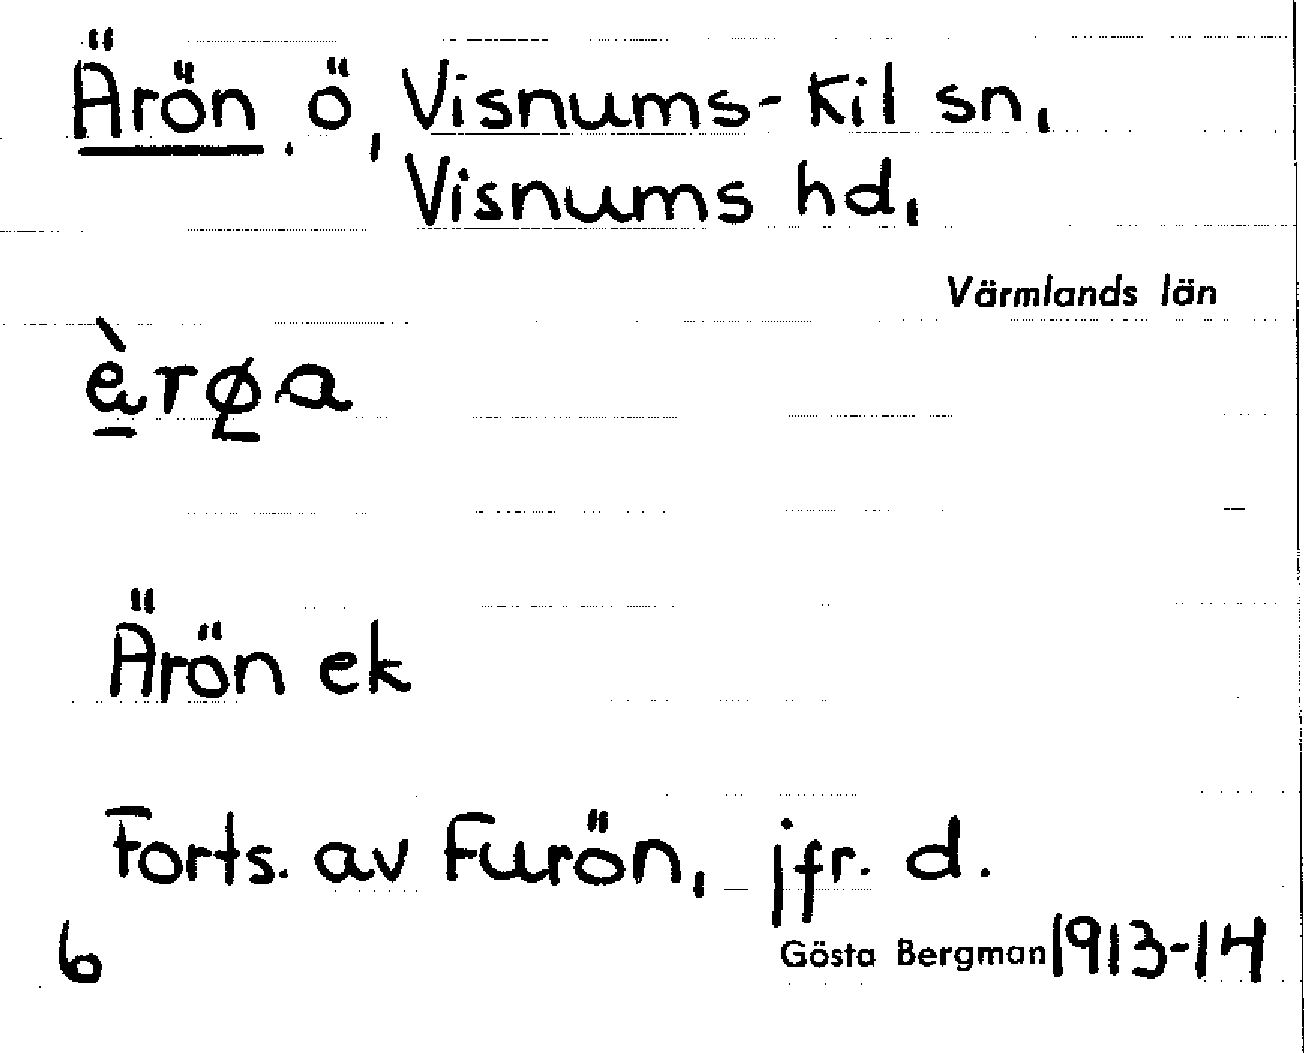 Ärön. ö, Visnums-Kil sn,
Visnums hd,
Värmlands län
Ärön ek
Forts. av Furön, jfr. d.
6
Gösta Bergman 1913-14